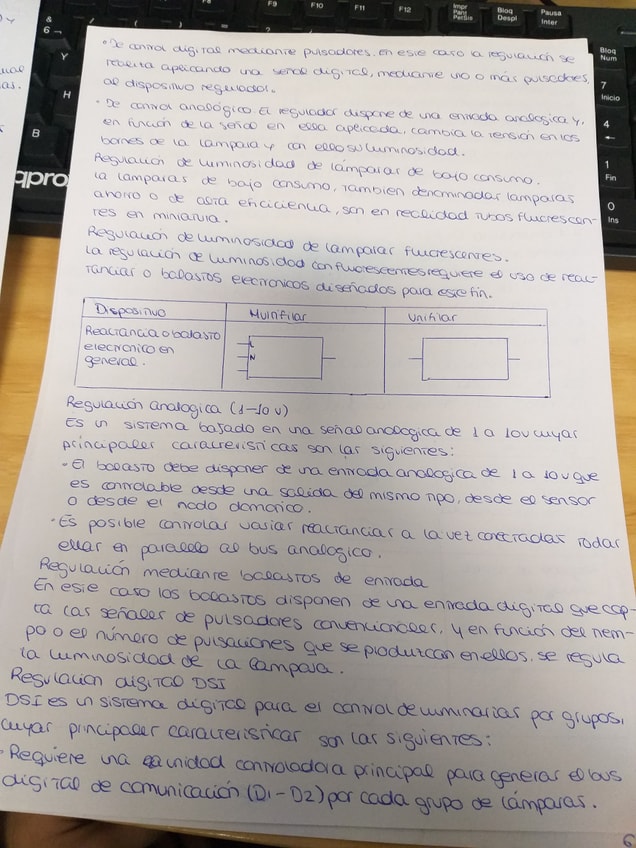 F9
F10
F11
F12
Impr
Pant
PetSis
Bloq
Despl
Pausa
Inter
Bloq
Num
&
6 ¬
Y
H
B
7
Inicio
4
←
1
Fin
0
Ins
• De control digital mediante pulsadores. En este caso la regulación se
realiza aplicando una señal digital, mediante uno o más pulsadores,
al dispositivo regulador.
• De control analógico. El regulador dispone de una entrada analogica y,
en función de la señal en ella aplicada, cambia la tensión en los
bornes de la lampara y con ello su luminosidad.
Regulación de luminosidad de lámparas de bajo consumo.
La lamparas de bajo consumo, tambien denominadas lamparas
ahorro o de alta eficiciencia, son en realidad tubos fluorescen-
tes en miniatura.
Regulación de luminosidad de lamparas fluorescentes.
La regulación de luminosidad con fluorescentes requiere el uso de reac-
tancias o balastos electronicos diseñados para este fin.
Dispositivo Multifilar Unifilar
Reactancia o balasto
electronico en
general.
L
N
Regulación analogica (1-10 v)
Es un sistema basado en una señal analogica de 1 a 10v cuyas
principales caracteristicas son las siguientes:
• El balasto debe disponer de una entrada analogica de 1 a 10v que
es controlable desde una salida del mismo tipo, desde el sensor
o desde el nodo domotico.
• Es posible controlar varias reactancias a la vez conectradas todas
ellas en paralelo al bus analogico.
Regulación mediante balastos de entrada
En este caso los balastos disponen de una entrada digital que cap-
ta las señales de pulsadores convencionales, y en función del tiem-
po o el número de pulsaciones que se produzcan en ellos, se regula
la luminosidad de la lampara.
Regulación digital DSI
DSI es un sistema digital para el control de luminarias por grupos,
cuyas principales caracteristicas son las siguientes:
• Requiere una unidad controladora principal para generar el bus
digital de comunicación (D1-D2) por cada grupo de lámparas.
6